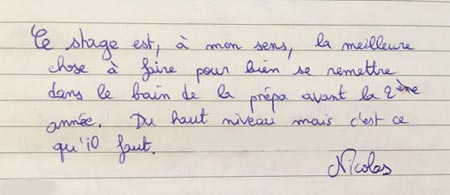 Ce stage est, à mon sens, la meilleure
chose à faire pour bien se remettre
dans le bain de la prépa avant la 2ème
année. Du haut niveau mais c'est ce
qu'il faut.
Nicolas